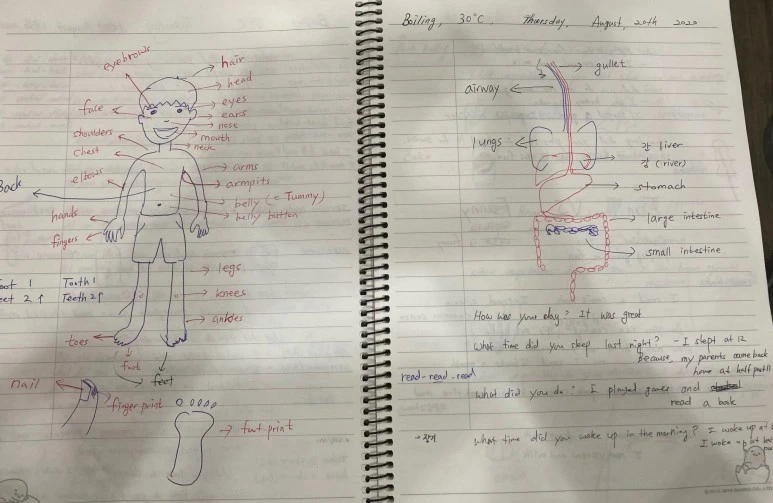 eyebrows
hair
head
face
eyes
ears
nose
mouth
neck
shoulders
chest
elbows
arms
armpits
Back
belly (= Tummy)
belly button
hands
fingers
legs
knees
ankles
Tooth 1
Teeth 2↑
toes
foot
feet
nail
finger print
foot print
Boiling, 30°C. Thursday, August, 20th 2020
gullet
airway
lungs
간 liver
강 (river)
stomach
large intestine
small intestine
How was your day? It was great
What time did you sleep last night? - I slept at 12
because, my parents came back
home at half past 11
read-read-read
What did you do? I played games and
read a book
What time did you wake up in the morning? I woke up at
I woke up at